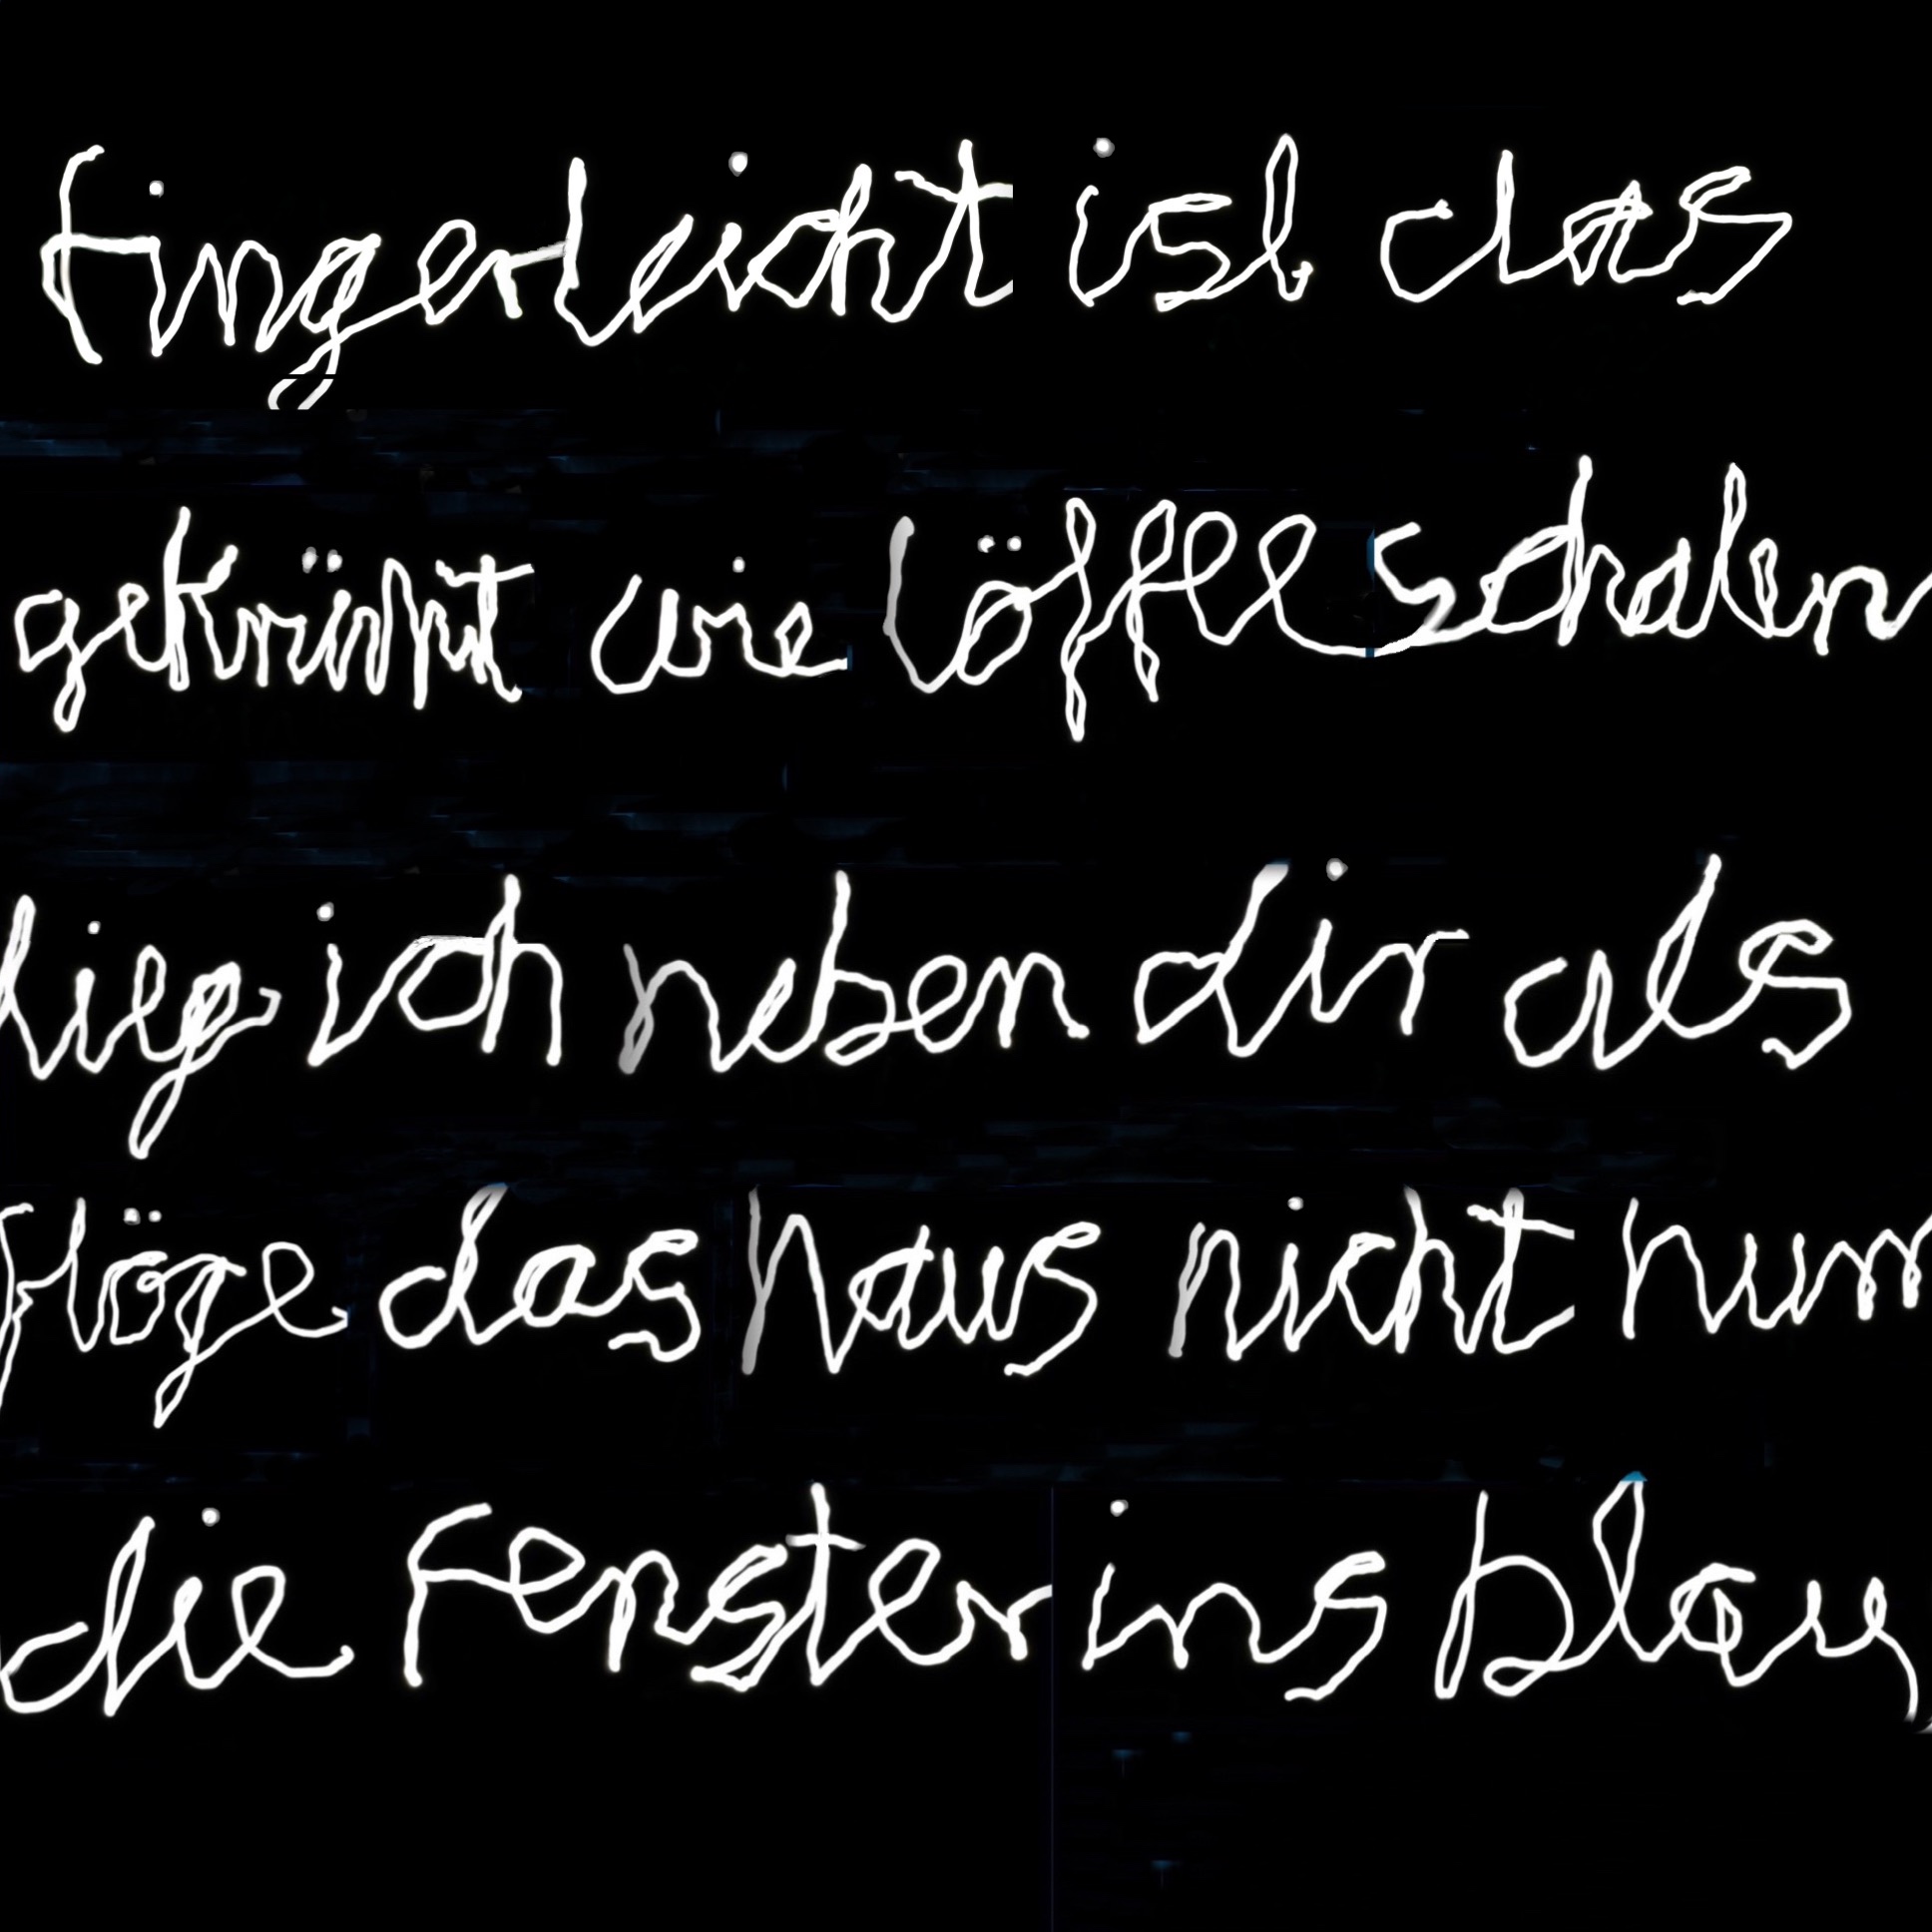 fingerleicht ist das
gekrümmt wie löffelschalen
lieg ich neben dir als
flöge das haus nicht nur
die fenster ins blau